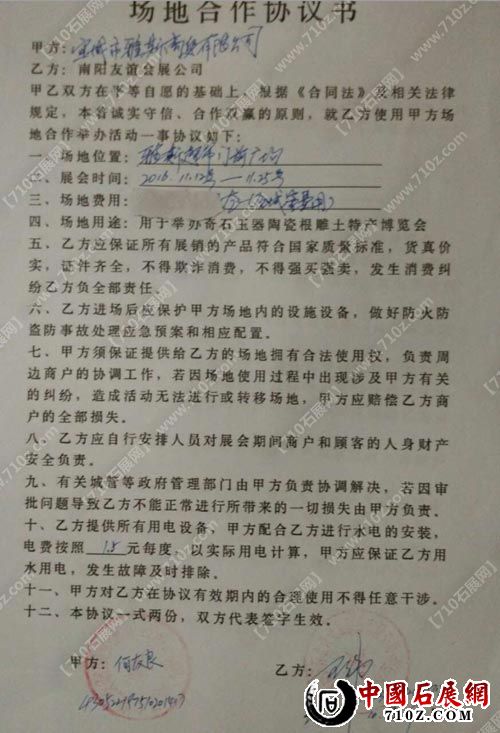 场地合作协议书
甲方:
乙方:南阳友谊会展公司
甲乙双方在平等自愿的基础上,根据《合同法》及相关法律
规定,本着诚实守信、合作双赢的原则,就乙方使用甲方场
地合作举办活动一事协议如下:
一、场地位置:
二、展会时间:2016.11.12号—11.25号
三、场地费用:
四、场地用途:用于举办奇石玉器陶瓷根雕土特产博览会
五、乙方应保证所有展销的产品符合国家质量标准,货真价
实,证件齐全,不得欺诈消费,不得强买强卖,发生消费纠
纷乙方负全部责任。
六、乙方进场后应保护甲方场地内的设施设备,做好防火防
盗防事故处理应急预案和相应配置。
七、甲方须保证提供给乙方的场地拥有合法使用权,负责周
边商户的协调工作,若因场地使用过程中出现涉及甲方有关
的纠纷,造成活动无法进行或转移场地,甲方应赔偿乙方商
户的全部损失。
八、乙方应自行安排人员对展会期间商户和顾客的人身财产
安全负责。
九、有关城管等政府管理部门由甲方负责协调解决,若因审
批问题导致乙方不能正常进行所带来的一切损失由甲方负责。
十、乙方提供所有用电设备,甲方配合乙方进行水电的安装,
电费按照 1.5 元每度,以实际用电计算,甲方应保证乙方用
水用电,发生故障及时排除。
十一、甲方对乙方在协议有效期内的合理使用不得任意干涉。
十二、本协议一式两份,双方代表签字生效。
甲方:何友良
乙方:
中國石展網
710Z.COM
【710石展网】
www.710z.com